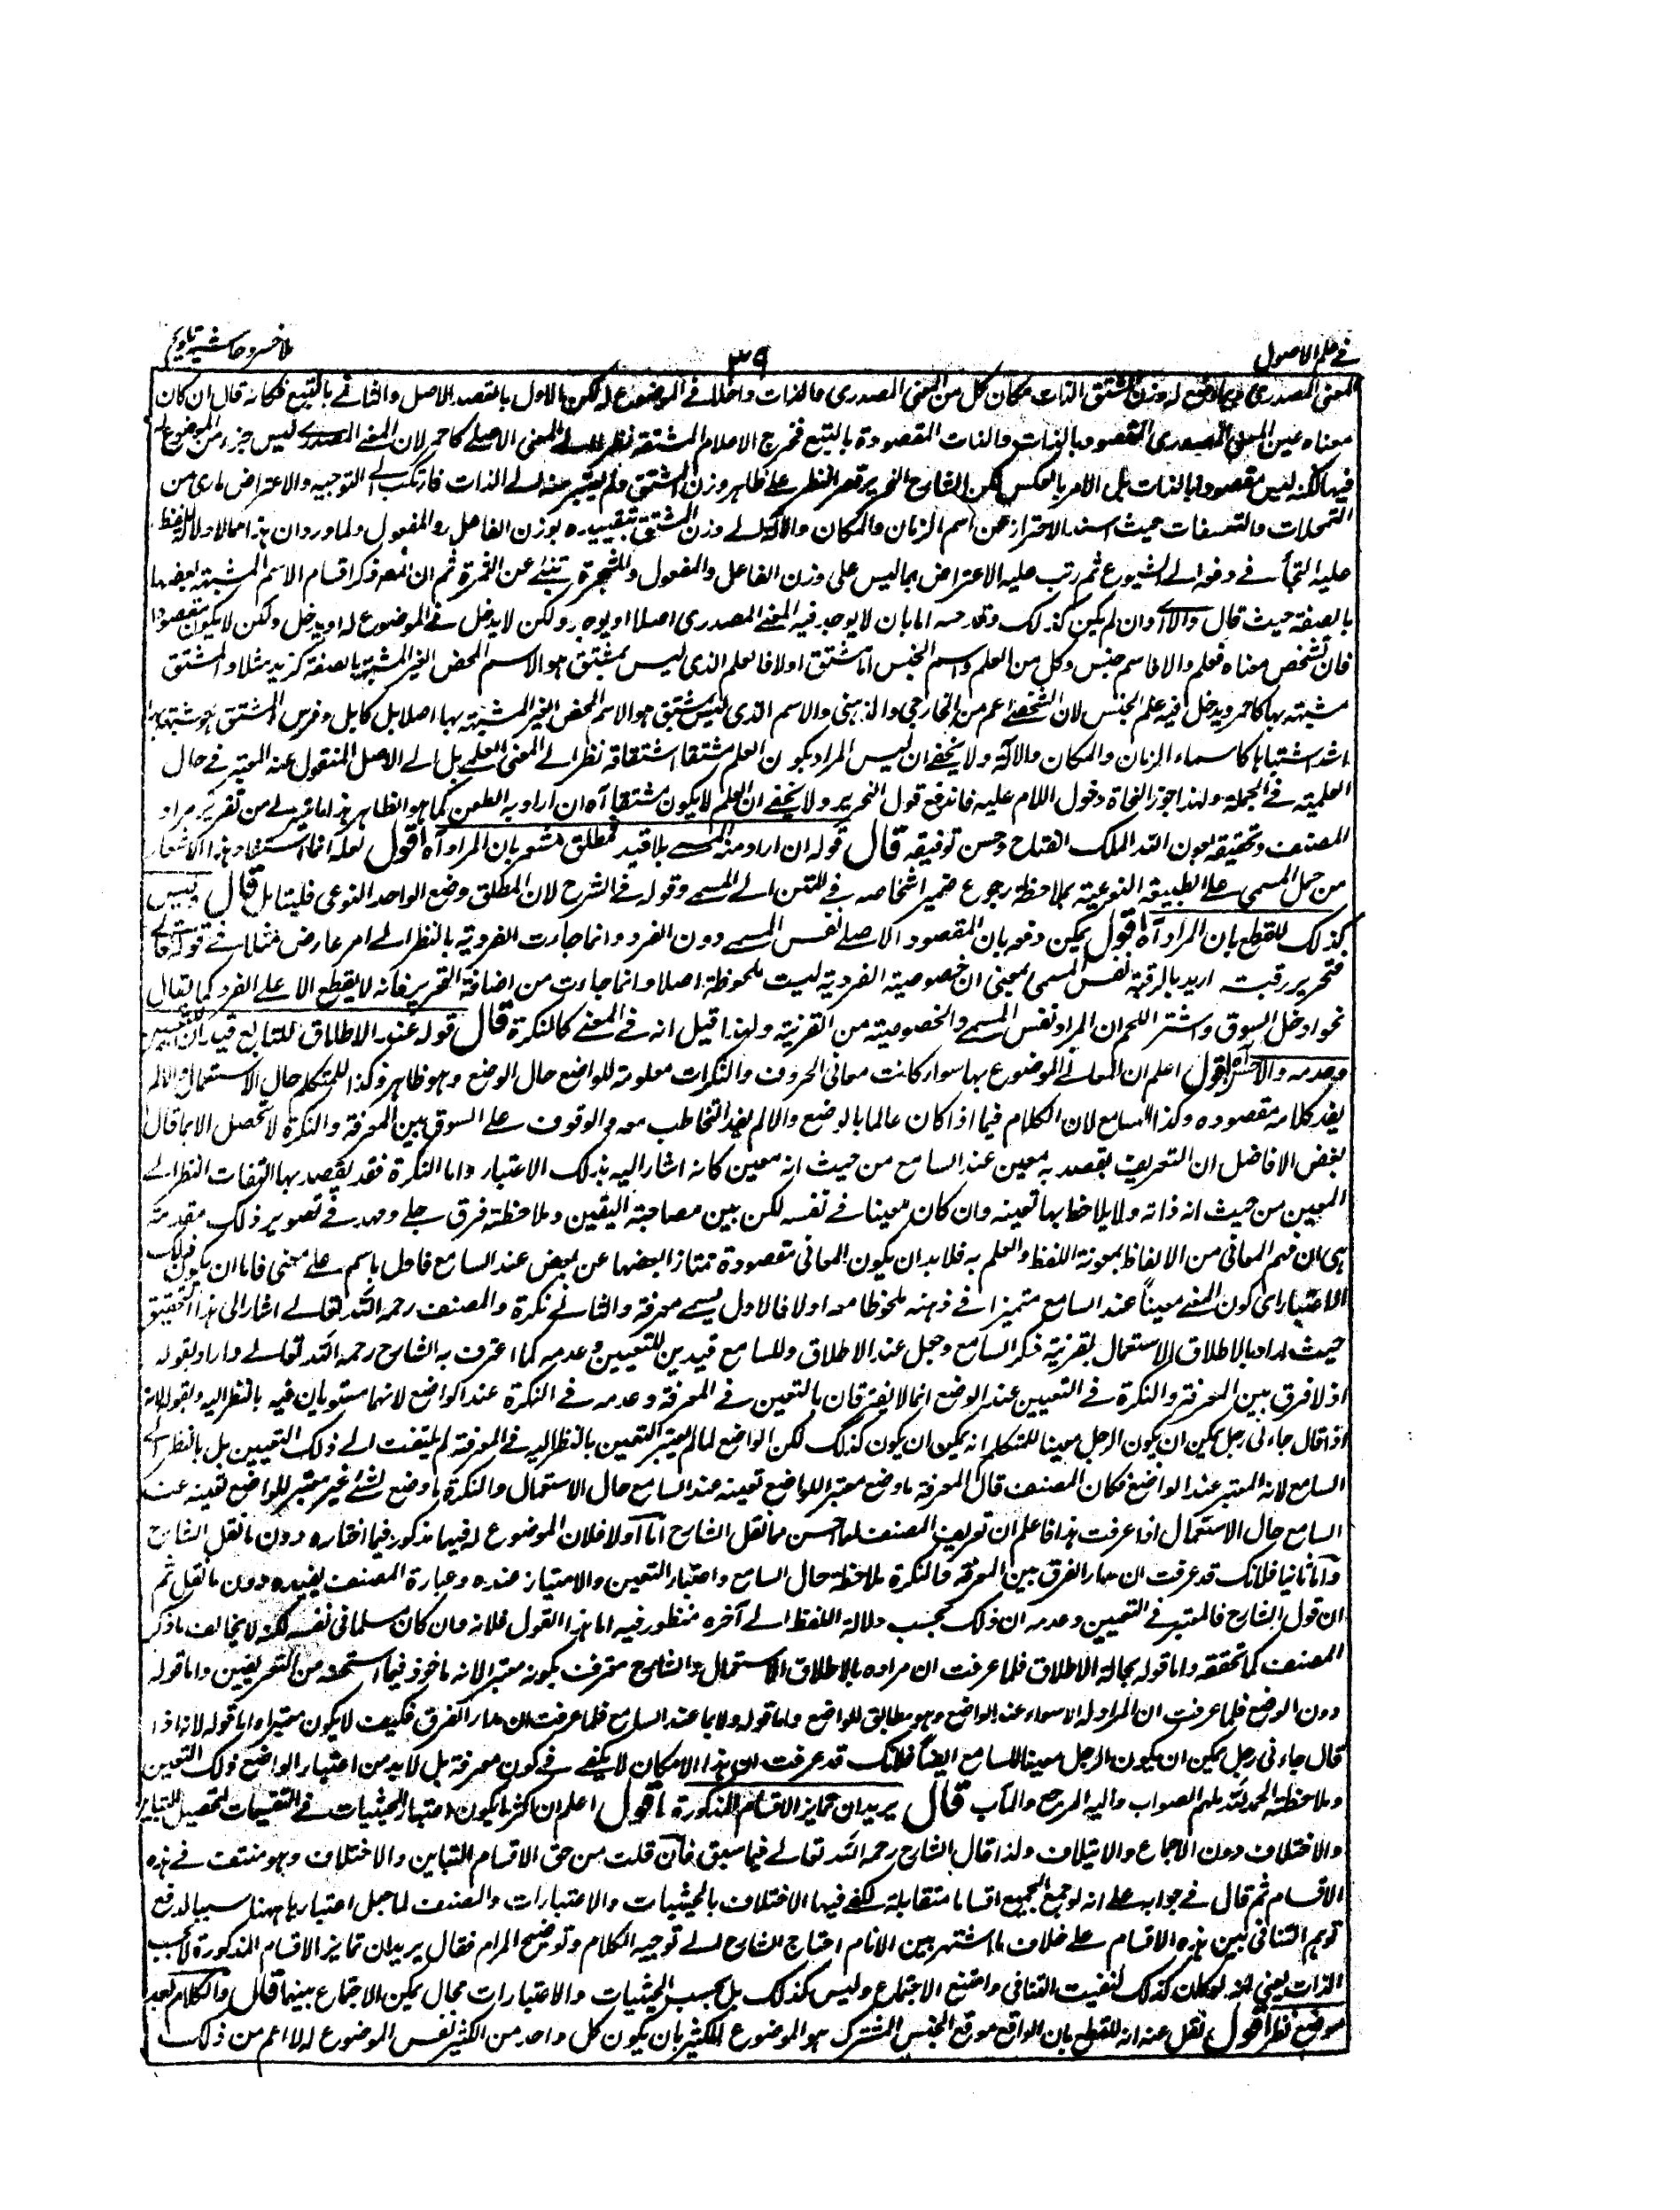 في علم الاصول
٣٩
ملا خسرو حاشية تلويح
المعنى المصدرى وبما وضع له وزن المشتق الذات مكان كل من المعنى المصدرى والذات داخلا في الموضوع له لكن الاول بالقصد الاصلى والثاني بالتبع فكانه قال ان كان
معناه عين المعنى المصدرى المقصود بالذات والذات المقصودة بالتبع فخرج الاعلام المشتقة نظرا الى المعنى الاصلى كاحمر لان المعنى المصدرى ليس جزء من الموضوع له
فيها لكنه ليس مقصودا بالذات بل الامر بالعكس لكن الشارح النحرير قصر النظر على ظاهر وزن المشتق ولم يعتبر معه الى الذات فارتكب في التوجيه والاعتراض ما رى من
التمحلات والتعسفات حيث اسند الاحتراز عن اسم الزمان والمكان والآلة الى وزن المشتق بتقييده بوزن الفاعل والمفعول ولما ورد ان هذا مما لا دلالة للفظ
عليه التجأ في دفعه الى الشيوع ثم رتب عليه الاعتراض بما ليس على وزن الفاعل والمفعول والشجرة تنبئ عن الثمرة ثم ان المصنف ذكر اقسام الاسم المشبهة بعضها
بالصفة حيث قال والا اى وان لم يكن كذلك وقد رسمه اما بان لا يوجد فيه المعنى المصدرى اصلا او يوجد ولكن لا يدخل في الموضوع له او يدخل ولكن لا يكون مقصودا
فان تشخص معناه فعلم والا فاسم جنس وكل من العلم واسم الجنس اما مشتق اولا فالعلم الذى ليس بمشتق هو الاسم المحض الغير المشبهة بالصفة كزيد مثلا والمشتق
مشبهة بها كاحمر ويدخل فيه علم الجنس لان الشخص اعم من الخارجى والذهنى والاسم الذى ليس بمشتق هو الاسم المحض الغير المشبهة بها اصلا بل كابل وفرس والمشتق هو مشتبه بها
اشد اشتباها كاسماء الزمان والمكان والآلة ولا يخفى ان ليس المراد بكون العلم مشتقا اشتقاقه نظرا الى المعنى العلمى بل الى الاصل المنقول عنه المعتبر في حال
العلمية في الجملة ولهذا جوز النحاة دخول اللام عليه فاندفع قول النحرير ولا يخفى ان العلم لا يكون مشتقا آه ان اراد به الطعن كما هو الظاهر هذا ما عن لى من تقرير مراد
المصنف وتحقيقه بعون الله الملك الفتاح وحسن توفيقه قال قوله ان اراد منه المسمى بلا قيد فمطلق مشعر بان المراد آه اقول لعله انما استفاد هذا الاشعار
من حمل المسمى على الطبيعة النوعية بملاحظة رجوع ضمير اشخاصه في المتن الى المسمى وقوله في الشرح لان المطلق وضع الواحد النوعى فليتامل قال ليس
كذلك للقطع بان المراد آه اقول يمكن دفعه بان المقصود الاصلى نفس المسمى دون الفرد وانما جاءت الفردية بالنظر الى امر عارض مثلا في قوله تعالى
فتحرير رقبة اريد بالرقبة نفس المسمى بمعنى ان خصوصية الفردية ليست ملحوظة اصلا وانما جاءت من اضافة التحرير فانه لا يقطع الا على الفرد كما يقال
نحو ادخل السوق واشتر اللحم ان المراد نفس المسمى والخصوصية من القرينة ولهذا قيل انه في المعنى كالنكرة قال قوله عند الاطلاق للسامع قيد ان للتعيين
وعدمه والاحتراز اقول اعلم ان المعانى الموضوع بها سواء كانت معانى الحروف والنكرات معلومة للواضع حال الوضع وهو ظاهر وكذا للمتكلم حال الاستعمال والا لم
يفد كلامه مقصوده وكذا للسامع لان الكلام فيما اذا كان عالما بالوضع والا لم يفد التخاطب معه والوقوف على السوق بين المعرفة والنكرة لا تحصل الا بما قال
بعض الافاضل ان التعريف يقصد به معين عند السامع من حيث انه معين كانه اشار اليه بذلك الاعتبار واما النكرة فقد يقصد بها التفات النظر الى
المعين من حيث انه ذاته ولا يلاحظ بها تعينه وان كان معينا في نفسه لكن بين مصاحبة اليقين وملاحظته فرق جلى ومهد في تصوير ذلك مقدمة
هى ان فهم المعانى من الالفاظ بمعونة اللفظ والعلم به فلا بد ان يكون المعانى مقصودة تمتاز بعضها عن بعض عند السامع فاذا دل باسم على معنى فاما ان يكون ذلك
الاعتبار اى كون المعنى معينا عند السامع متميزا في ذهنه ملحوظا معه اولا فالاول يسمى معرفة والثانى نكرة والمصنف رحمه الله تعالى اشار الى هذا التحقيق
حيث اراد بالاطلاق الاستعمال بقرينة ذكر السامع وجعل عند الاطلاق وللسامع قيدين للتعيين وعدمه كما اعترف به الشارح رحمه الله تعالى واراد بقوله
اذ لا فرق بين المعرفة والنكرة في التعيين عند الوضع انما لا يفترقان بالتعين في المعرفة وعدمه في النكرة عند الواضع لانهما مستويان فيه بالنظر اليه وبقوله لانه
اذا قال جاءنى رجل يمكن ان يكون الرجل معينا للمتكلم انه يمكن ان يكون كذلك لكن الواضع لما لم يعتبر التعين بالنظر اليه في المعرفة لم يلتفت الى ذلك التعيين بل بالنظر الى
السامع لانه المعتبر عند الواضع فكان المصنف قال المعرفة ما وضع معتبر للواضع تعينه عند السامع حال الاستعمال والنكرة ما وضع لشئ غير معتبر للواضع تعينه عند
السامع حال الاستعمال اذا عرفت هذا فاعلم ان تعريف المصنف لها احسن مما نقل الشارح اما اولا فلان الموضوع له فيها مذكور فيما اختاره دون ما نقل الشارح
واما ثانيا فلانك قد عرفت ان مدار الفرق بين المعرفة والنكرة ملاحظة حال السامع واعتبار التعين والامتياز عنده وعبارة المصنف يفيده دون ما نقل ثم
ان قول الشارح فالمعتبر في التعيين وعدمه ان ذلك بحسب دلالة اللفظ الى آخره منظور فيه اما هذا القول فلانه وان كان مسلما في نفسه لكنه لا يخالف ما ذكر
المصنف كما تحققه واما قوله بحالة الاطلاق فلما عرفت ان مراده بالاطلاق الاستعمال والشارح معترف بكونه معتبرا لانه ماخوذ فيما استحسنه من التعريفين واما قوله
دون الوضع فلما عرفت ان المراد له الاسواء عند الواضع وهو مطابق للواضع واما قوله ولا بما عند السامع فلما عرفت ان مدار الفرق فكيف لا يكون معتبرا واما قوله لانه اذا
قال جاءنى رجل يمكن ان يكون الرجل معينا للسامع ايضا فلانك قد عرفت ان هذا الامكان لا يكفى في كون معرفة بل لا بد من اعتبار الواضع ذلك التعين
وملاحظته الحمد لله ملهم الصواب واليه المرجع والمآب قال يريد ان تمايز الاقسام المذكورة اقول اعلم ان اكثر ما يكون اعتبار الحيثيات في التقسيمات لتحصيل التباين
والاختلاف دون الاجماع والايتلاف ولذا قال الشارح رحمه الله تعالى فيما سبق فان قلت من حق الاقسام التباين والاختلاف وهو منتف في هذه
الاقسام ثم قال في جوابه على انه لو جمع الجميع اقساما متقابلة لكفى فيها الاختلاف بالحيثيات والاعتبارات والمصنف لما جعل اعتبارها ههنا سببا لدفع
توهم التنافى بين هذه الاقسام على خلاف ما اشتهر بين الانام احتاج الشارح الى توجيه الكلام وتوضيح المرام فقال يريد ان تمايز الاقسام المذكورة لا بحسب
الذات يعنى انه لو كان كذلك لثبت التنافى وامتنع الاجتماع وليس كذلك بل بحسب الحيثيات والاعتبارات مجال يمكن الاجتماع بينها قال والكلام بعد
موضع نظر اقول نقل عنه انه للقطع بان الواقع موقع الجنس المشترك هو الموضوع للكثير بان يكون كل واحد من الكثير نفس الموضوع له لا اعم من ذلك